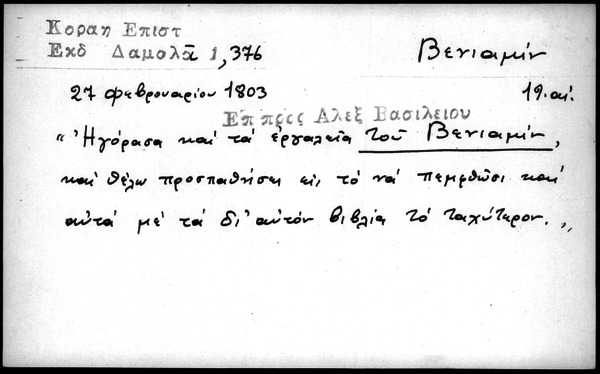 Κοραη Επιστ
Εκδ Δαμολᾶ 1,376
Βενιαμίν
27 φεβρουαρίου 1803
19. αἰ.
Επ πρες Αλεξ Βασιλειου
"Ἠγόρασα καί τά ἐργαλεῖα τοῦ Βενιαμίν,
καί θέλω προσπαθήσει εἰς τό νά πεμφθῶσι καί
αὐτά μέ τά δι' αὐτόν βιβλία τό ταχύτερον.,,